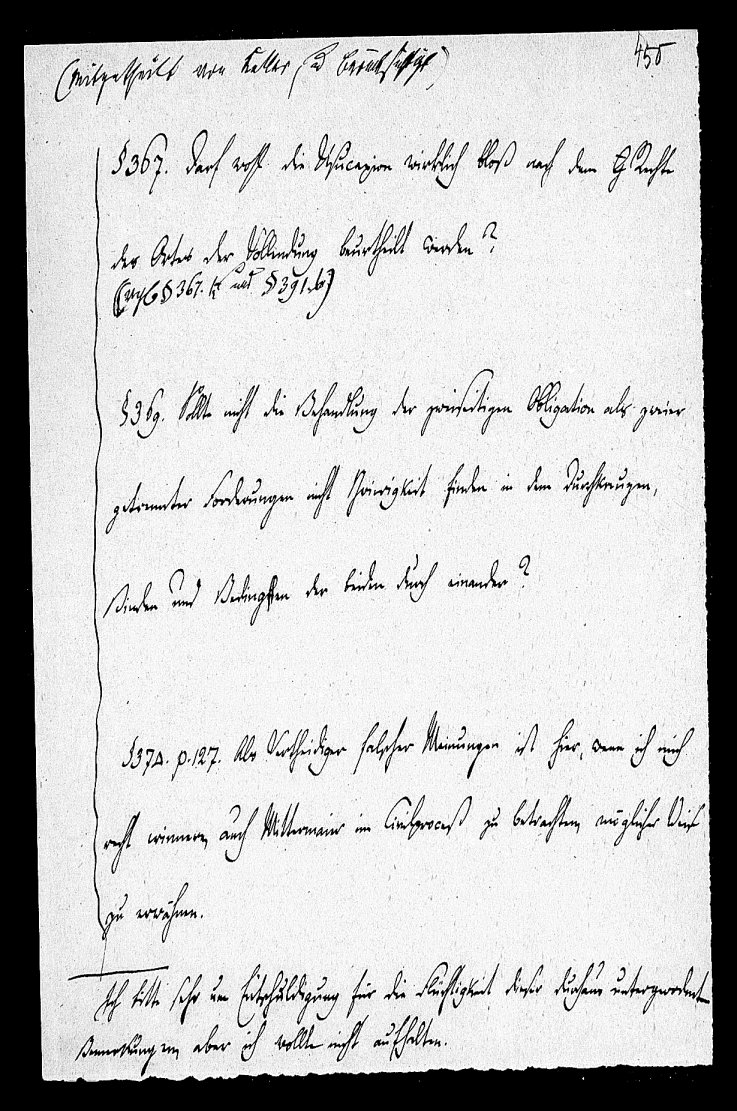 (Mitgetheilt von Keller, u berücksichtigt)
450
§ 367. Darf wohl die Usucapion wirklich bloß nach dem Rechte
des Ortes der Vollendung beurtheilt werden?
(vgl § 367. und § 391.)
§ 369. Sollte nicht die Behandlung der zweiseitigen Obligation als zweier
getrennter Forderungen nicht Schwierigkeit finden in dem Durchkreuzen,
Binden und Bedingen der beiden durch einander?
§ 374. p. 127. Als Vertheidiger falscher Meinungen ist hier, wenn ich mich
recht erinnere, auch Mittermaier im Civilproceß zu betrachten, möglicher Weise
zu erwähnen.
Ich bitte sehr um Entschuldigung für die Flüchtigkeit dieser durchaus
Bemerkungen, aber ich wollte nicht aufhalten.